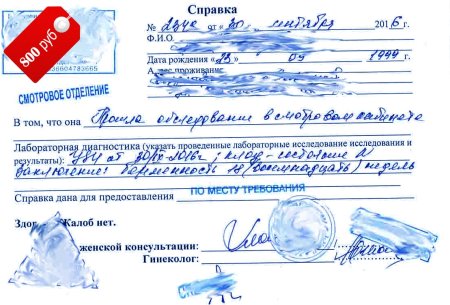 800 руб
Справка
№ 2340 от «30» сентября 2016 г.
Ф.И.О.
36604783665
Дата рождения «13» 09 1999 г.
А рес проживание
СМОТРОВОЕ ОТДЕЛЕНИЕ
В том, что она Прошла обследование в смотровом кабинете
Лабораторная диагностика (указать проведенные лабораторные исследование исследования и
результаты): УЗИ от 30/IX-2016г; состояние N
Заключение: беременность 18 (восемнадцать) недель
Справка дана для предоставления ПО МЕСТУ ТРЕБОВАНИЯ
Здо Жалоб нет.
женской консультации:
Гинеколог: